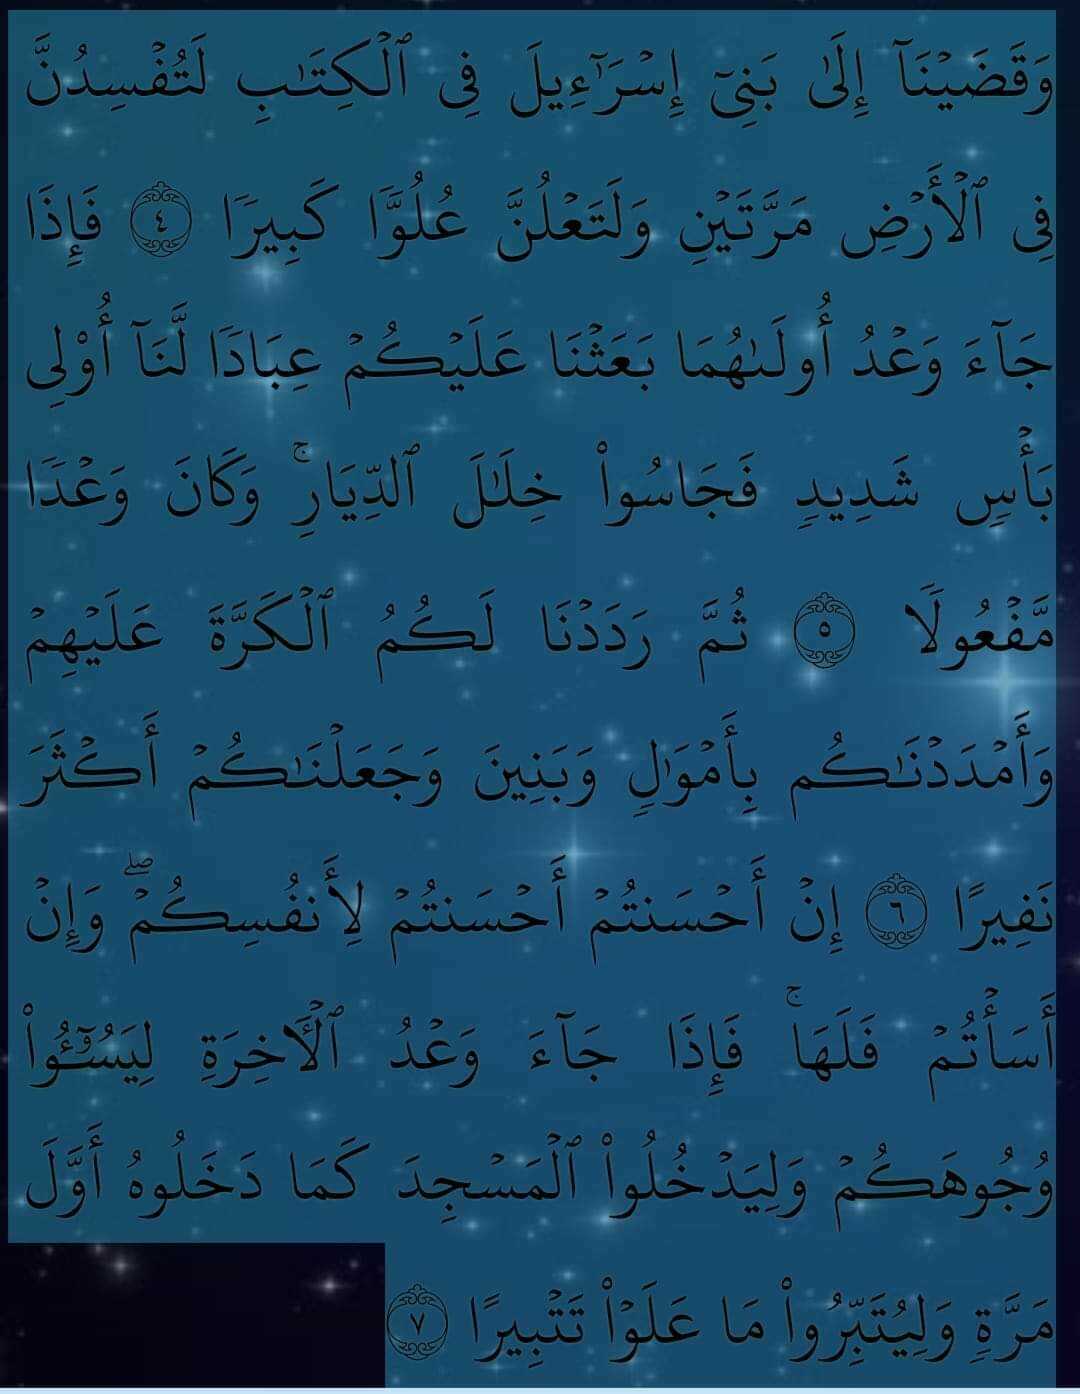 وَقَضَيۡنَآ إِلَىٰ بَنِيٓ إِسۡرَٰٓءِيلَ فِي ٱلۡكِتَٰبِ لَتُفۡسِدُنَّ
فِي ٱلۡأَرۡضِ مَرَّتَيۡنِ وَلَتَعۡلُنَّ عُلُوّٗا كَبِيرٗا ٤ فَإِذَا
جَآءَ وَعۡدُ أُولَىٰهُمَا بَعَثۡنَا عَلَيۡكُمۡ عِبَادٗا لَّنَآ أُوْلِي
بَأۡسٖ شَدِيدٖ فَجَاسُواْ خِلَٰلَ ٱلدِّيَارِۚ وَكَانَ وَعۡدٗا
مَّفۡعُولٗا ٥ ثُمَّ رَدَدۡنَا لَكُمُ ٱلۡكَرَّةَ عَلَيۡهِمۡ
وَأَمۡدَدۡنَٰكُم بِأَمۡوَٰلٖ وَبَنِينَ وَجَعَلۡنَٰكُمۡ أَكۡثَرَ
نَفِيرًا ٦ إِنۡ أَحۡسَنتُمۡ أَحۡسَنتُمۡ لِأَنفُسِكُمۡۖ وَإِنۡ
أَسَأۡتُمۡ فَلَهَاۚ فَإِذَا جَآءَ وَعۡدُ ٱلۡأٓخِرَةِ لِيَسُـُٔواْ
وُجُوهَكُمۡ وَلِيَدۡخُلُواْ ٱلۡمَسۡجِدَ كَمَا دَخَلُوهُ أَوَّلَ
مَرَّةٖ وَلِيُتَبِّرُواْ مَا عَلَوۡاْ تَتۡبِيرًا ٧